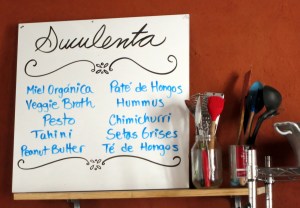 Suculenta
Miel Orgánica
Veggie Broth
Pesto
Tahini
Peanut Butter
Paté de Hongos
Hummus
Chimichurri
Setas Grises
Té de Hongos